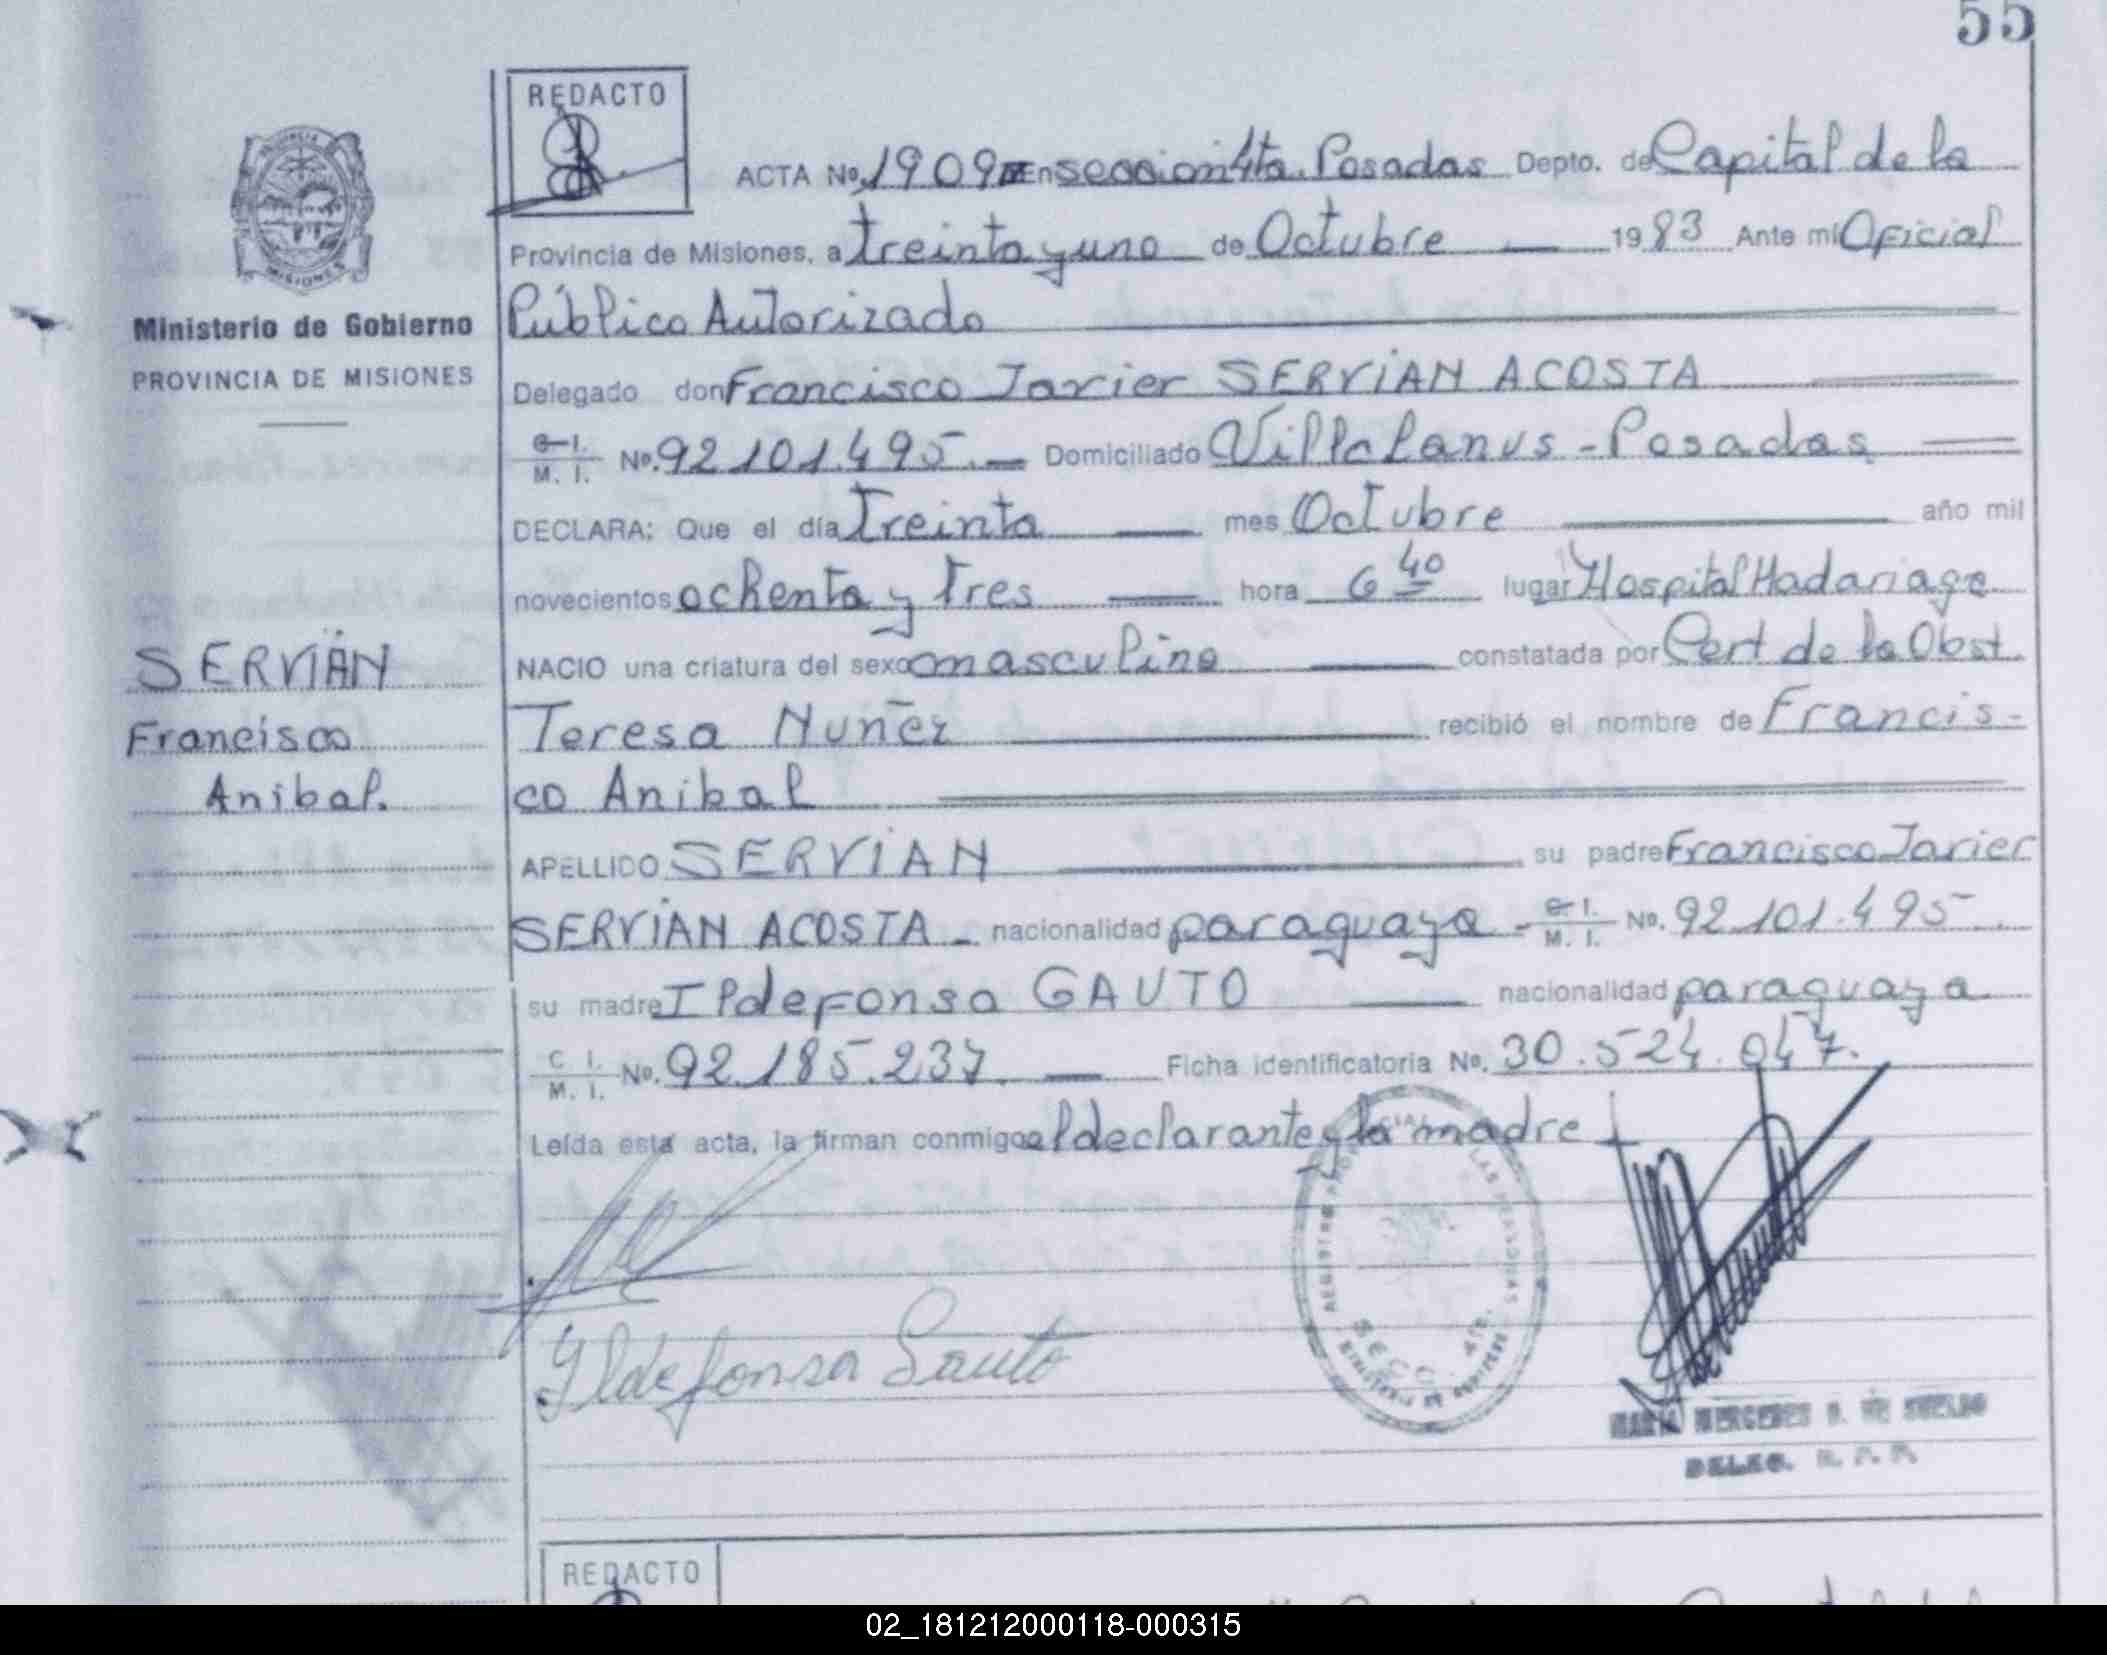 55
REDACTO
ACTA No. 1909 En seccion 4ta. Posadas Depto. de Capital de la
Provincia de Misiones, a treinta y uno de Octubre 1983 Ante mi Oficial
Público Autorizado
Ministerio de Gobierno
PROVINCIA DE MISIONES
Delegado don Francisco Javier SERVIAN ACOSTA
C. I. M. I. No. 92.101.495.— Domiciliado Villa Lanus - Posadas
DECLARA: Que el día Treinta mes Octubre año mil
novecientos ochenta y tres hora 6 40 lugar Hospital Madariaga
NACIO una criatura del sexo masculino constatada por Cert de la Obst.
Teresa Nuñez recibió el nombre de Francis-
co Anibal
SERVIAN
Francisco
Anibal.
APELLIDO SERVIAN su padre Francisco Javier
SERVIAN ACOSTA - nacionalidad paraguaya - C. I. M. I. No. 92.101.495
su madre Ildefonsa GAUTO nacionalidad paraguaya
C. I. M. I. No. 92.185.237. Ficha identificatoria No. 30.524.047.
Leída esta acta, la firman conmigo el declarante y la madre
Ildefonsa Gauto
SECC. 4ta.
MARIA MERCEDES
DELEG. R. P. P.
REDACTO
02_181212000118-000315